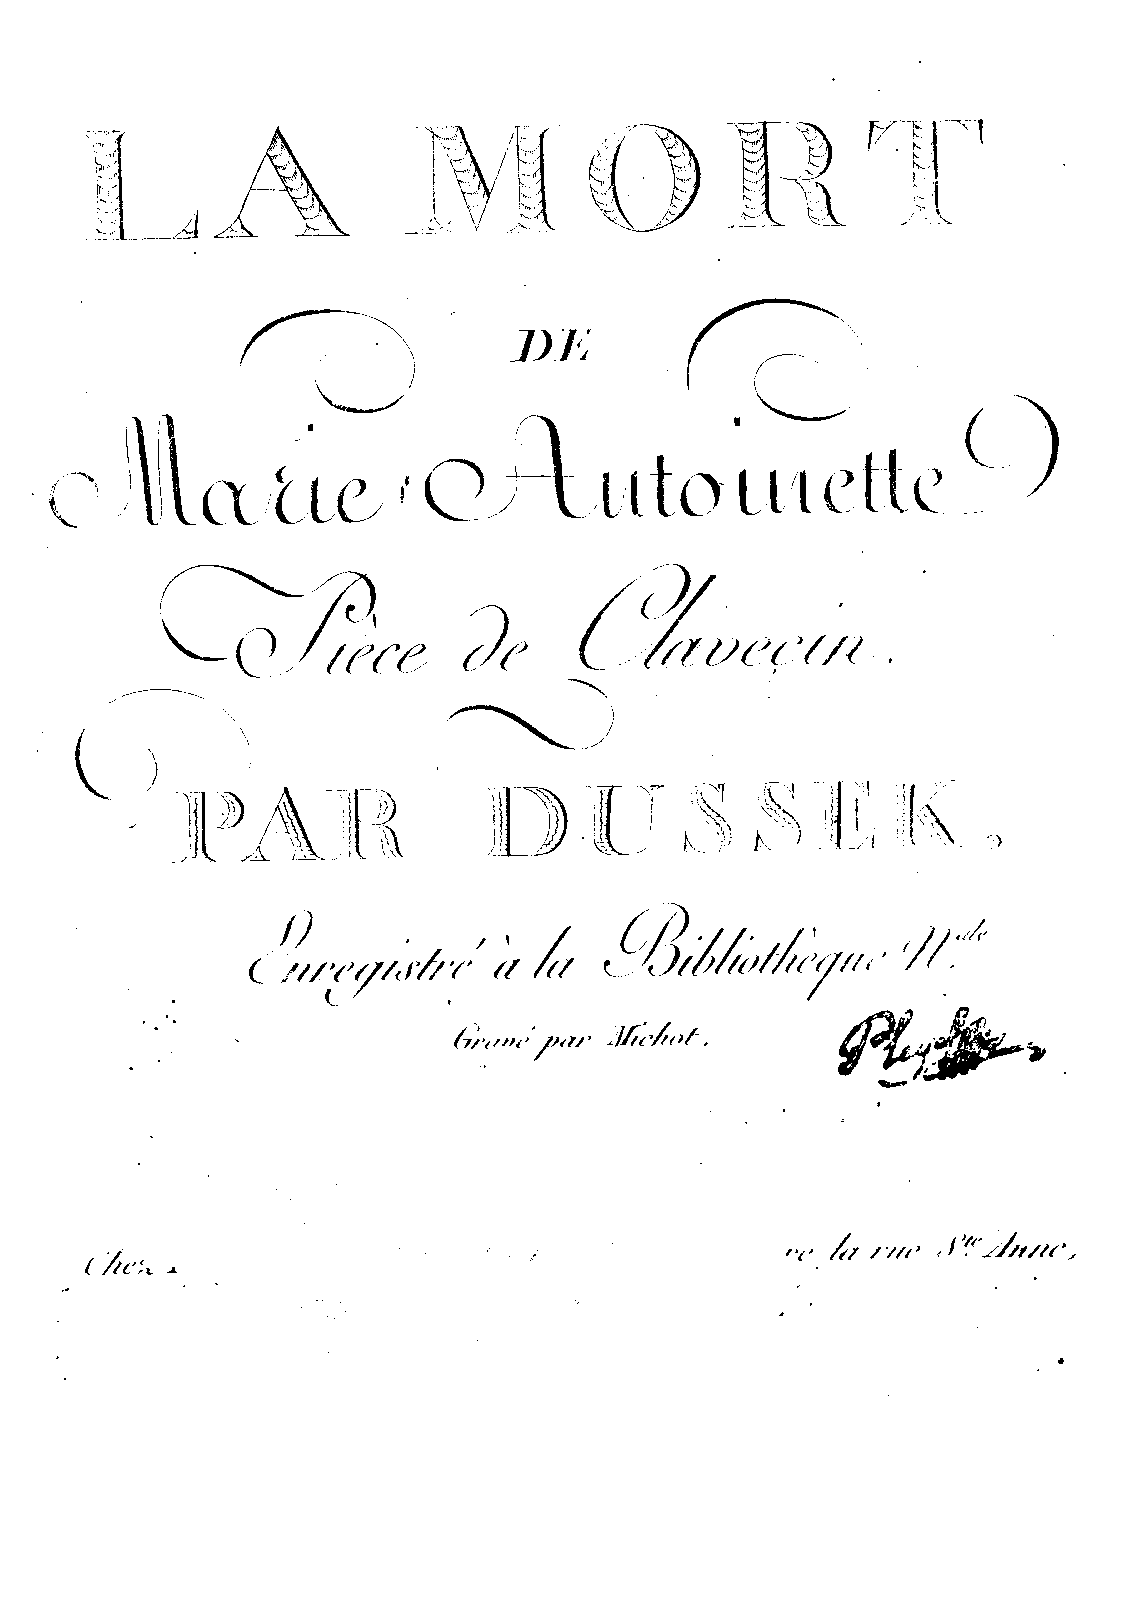 LA MORT
DE
Marie Antoinette
Pièce de Claveçin.
PAR DUSSEK.
Enregistré à la Bibliothèque N.ale
Gravé par Michot.
Chez
la rue Ste Anne.